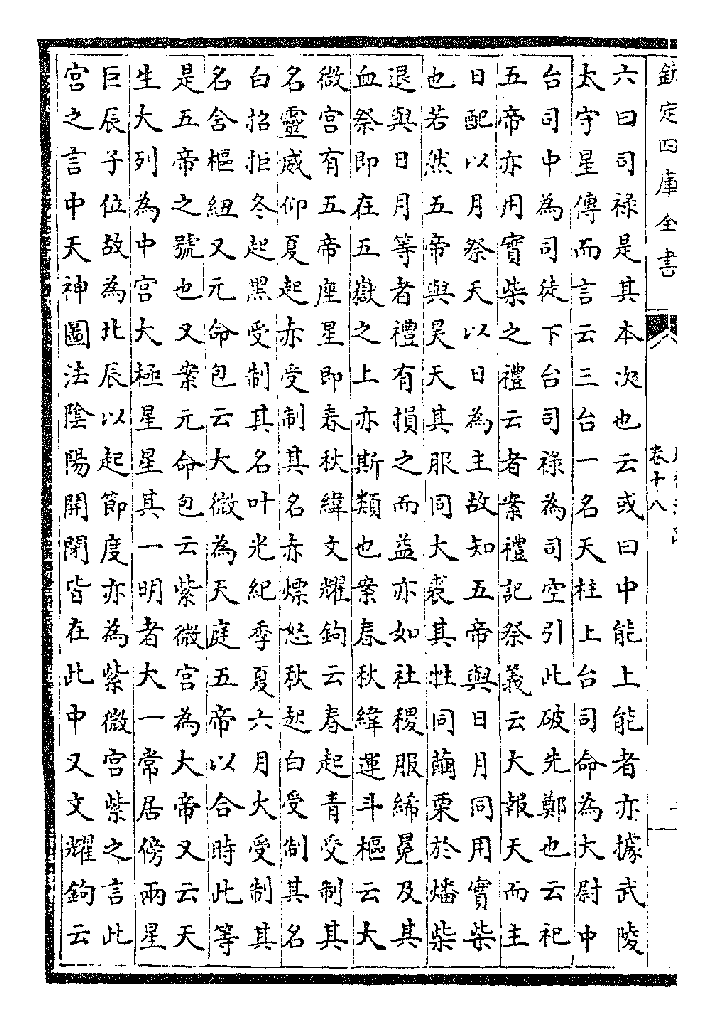 欽定四庫全書
卷十八
六曰司禄是其本次也云或曰中能上能者亦據武陵
太守星傳而言云三台一名天柱上台司命為大尉中
台司中為司徒下台司禄為司空引此破先鄭也云祀
五帝亦用實柴之禮云者案禮記祭義云大報天而主
日配以月祭天以日為主故知五帝與日月同用實柴
也若然五帝與昊天其服同大裘其牲同繭栗於燔柴
退與日月等者禮有損之而益亦如社稷服絺冕及其
血祭即在五嶽之上亦斯類也案春秋緯運斗樞云大
微宫有五帝座星即春秋緯文耀鉤云春起青受制其
名靈威仰夏起赤受制其名赤熛怒秋起白受制其名
白招拒冬起黑受制其名叶光紀季夏六月火受制其
名含樞紐又元命包云大微為天庭五帝以合時此等
是五帝之號也又案元命包云紫微宫為大帝又云天
生大列為中宫大極星星其一明者大一常居傍兩星
巨辰子位故為北辰以起節度亦為紫微宫紫之言此
宫之言中天神圖法陰陽開閉皆在此中又文耀鉤云